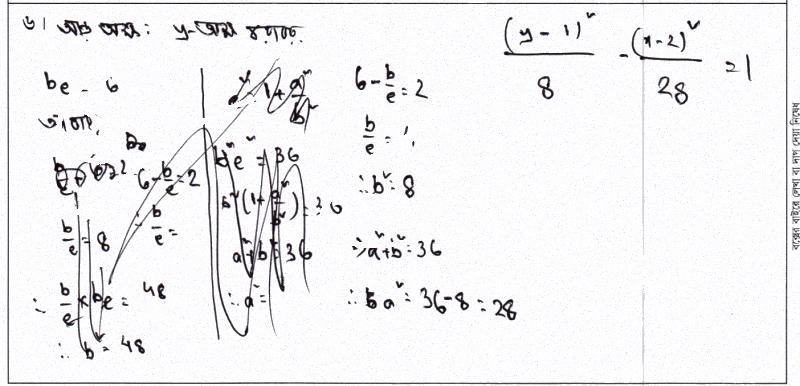 ৬। আড় অক্ষ: y-অক্ষ বরাবর
be = 6
6 - b/e = 2
b/e = 8
∴ b/e × be = 48
∴ b² = 48
6 - b/e = 2
b²e² = 36
b²(1 + a²/b²) = 36
a² + b² = 36
∴ a² =
6 - b/e = 2
b/e =
∴ b² = 8
∴ a² + b² = 36
∴ a² = 36 - 8 = 28
(y - 1)²/8 - (x - 2)²/28 = 1
বক্সের বাইরে লেখা বা দাগ দেয়া নিষেধ